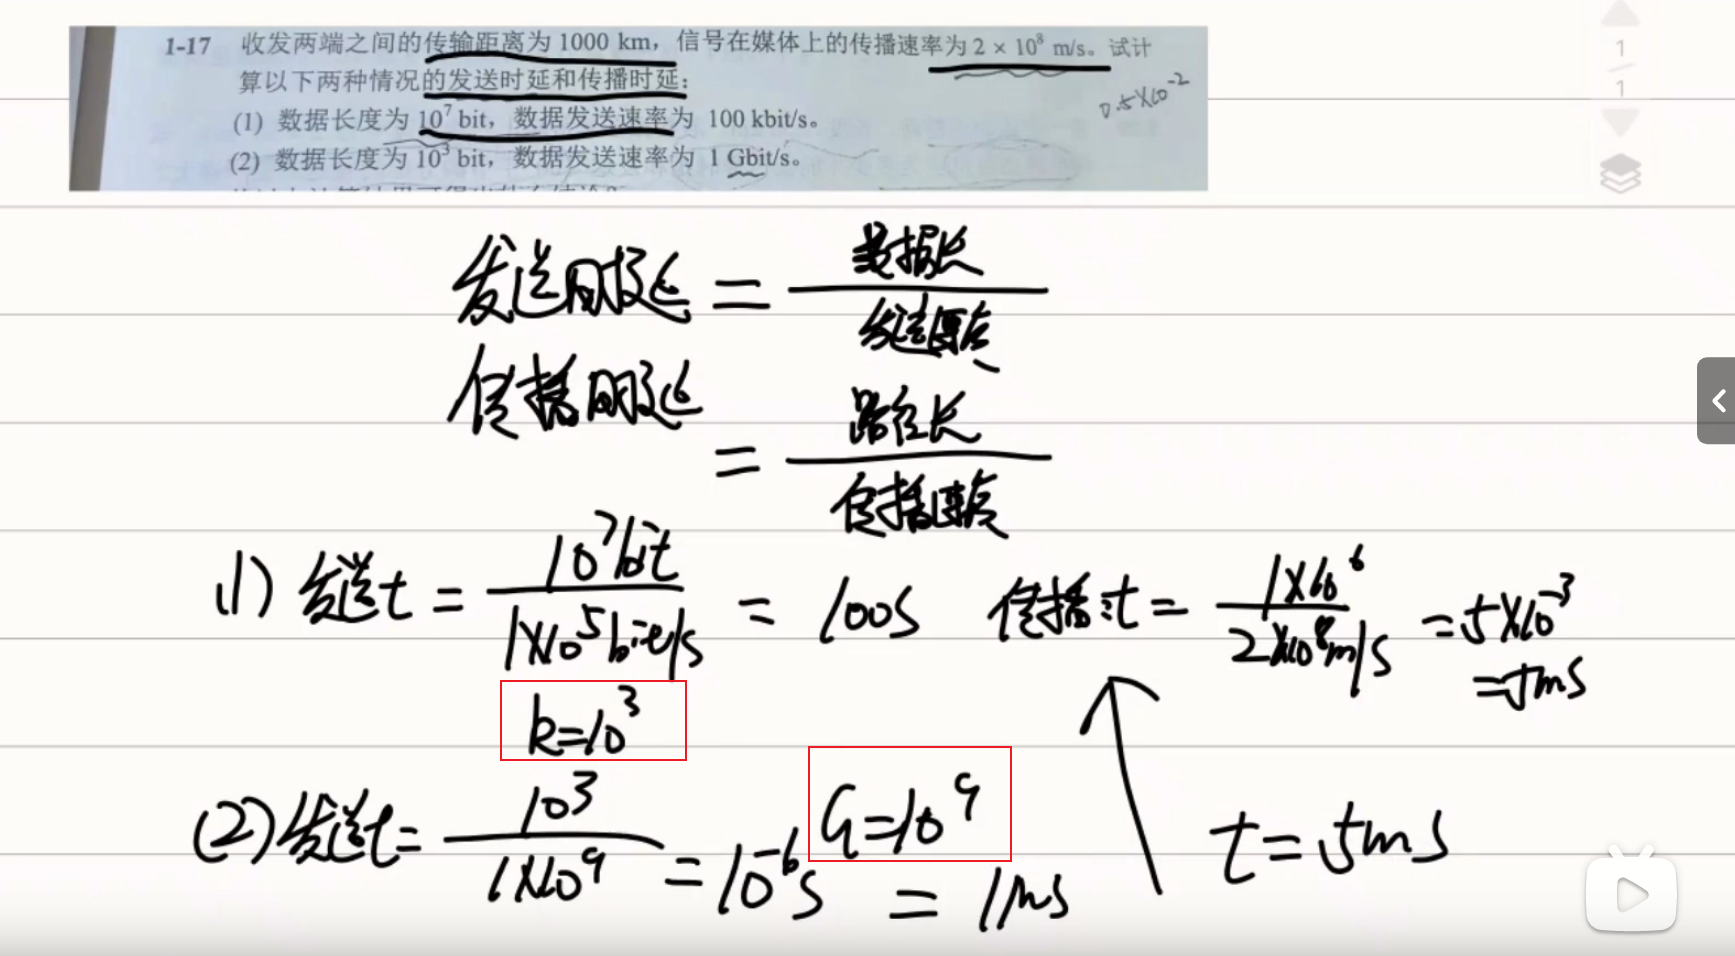 1-17 收发两端之间的传输距离为 1000 km，信号在媒体上的传播速率为 2 × 10⁸ m/s。试计
算以下两种情况的发送时延和传播时延：
0.5×10⁻²
(1) 数据长度为 10⁷ bit，数据发送速率为 100 kbit/s。
(2) 数据长度为 10³ bit，数据发送速率为 1 Gbit/s。
1
1
发送时延 = 数据长 / 发送速率
传播时延 = 路径长 / 传播速率
(1) 发送t = 10⁷bit / 1×10⁵bit/s = 100s 传播t = 1×10⁶ / 2×10⁸m/s = 5×10⁻³
= 5ms
k=10³
(2) 发送t = 10³ / 1×10⁹ = 10⁻⁶s = 1ms
G=10⁹
t = 5ms